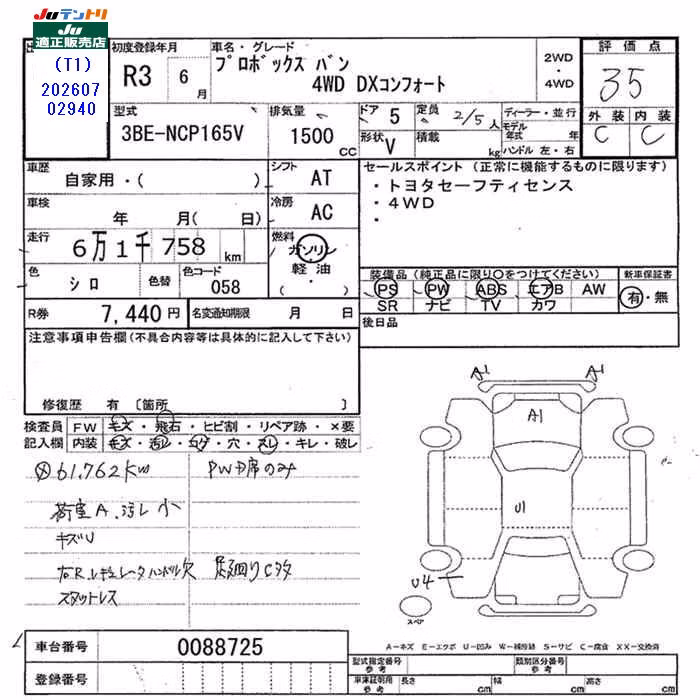 Juテントリ
Ju
適正販売店
(T1)
202607
02940
初度登録年月
R3 6月
車名・グレード
プロボックス バン
4WD DXコンフォート
2WD
・
4WD
評価点
35
外装 内装
C C
型式
3BE-NCP165V
排気量
1500 CC
ドア 5
定員 2/5人
形状 V
積載 kg
ディーラー・並行
モデル年式 年
ハンドル 左・右
車歴
自家用・( )
シフト AT
車検
年 月( 日)
冷房 AC
走行
6万1千758 km
燃料
ガソリン
軽油
(・)
色 シロ
色替
色コード 058
セールスポイント (正常に機能するものに限ります)
・トヨタセーフティセンス
・4WD
・
装備品(純正品に限り○をつけてください)
PS PW ABS エアB AW
SR ナビ TV カワ
新車保証書
有・無
R券 7,440円
名変通知期限 月 日
後日品
注意事項申告欄(不具合内容等は具体的に記入して下さい)
修復歴 有 [箇所 ]
検査員記入欄
FW キズ・飛石・ヒビ割・リペア跡・×要
内装 キズ・汚レ・コゲ・穴・スレ・キレ・破レ
61,762km
PWD席のみ
荷室A.汚レ小
キズU
右R.レギュレータハンドル欠
足廻りCサタ
スタットレス
A1 A1
A1
U1
U4
スペア
A-キズ E-エクボ U-凹み W-補修跡 S-サビ C-腐食 XX-交換済
車台番号 0088725
登録番号
型式指定番号 参考
類別区分番号 参考
車庫証明用 参考
長さ cm
幅 cm
高さ cm